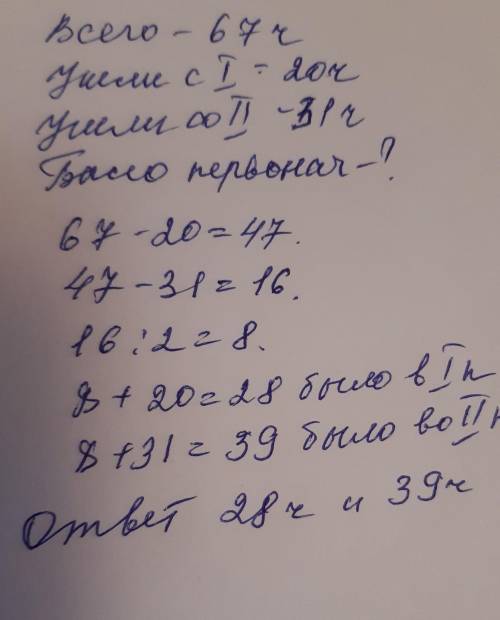 Всего – 67 ч
Ушли с I – 20ч
Ушли со II – 31 ч
Было первонач – ?
67 - 20 = 47.
47 - 31 = 16.
16 : 2 = 8.
8 + 20 = 28 было в I п
8 + 31 = 39 было во II п
Ответ 28 ч и 39 ч